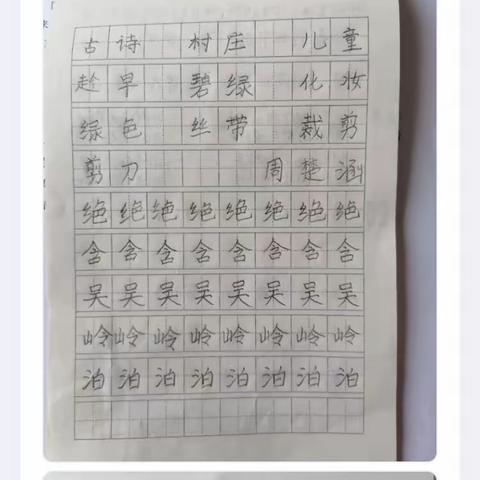 古诗 村庄 儿童
趁早 碧绿 化妆
绿色 丝带 裁剪
剪刀 周楚涵
绝绝绝绝绝绝绝绝
含含含含含含含含
吴吴吴吴吴吴吴吴
岭岭岭岭岭岭岭岭
泊泊泊泊泊泊泊泊